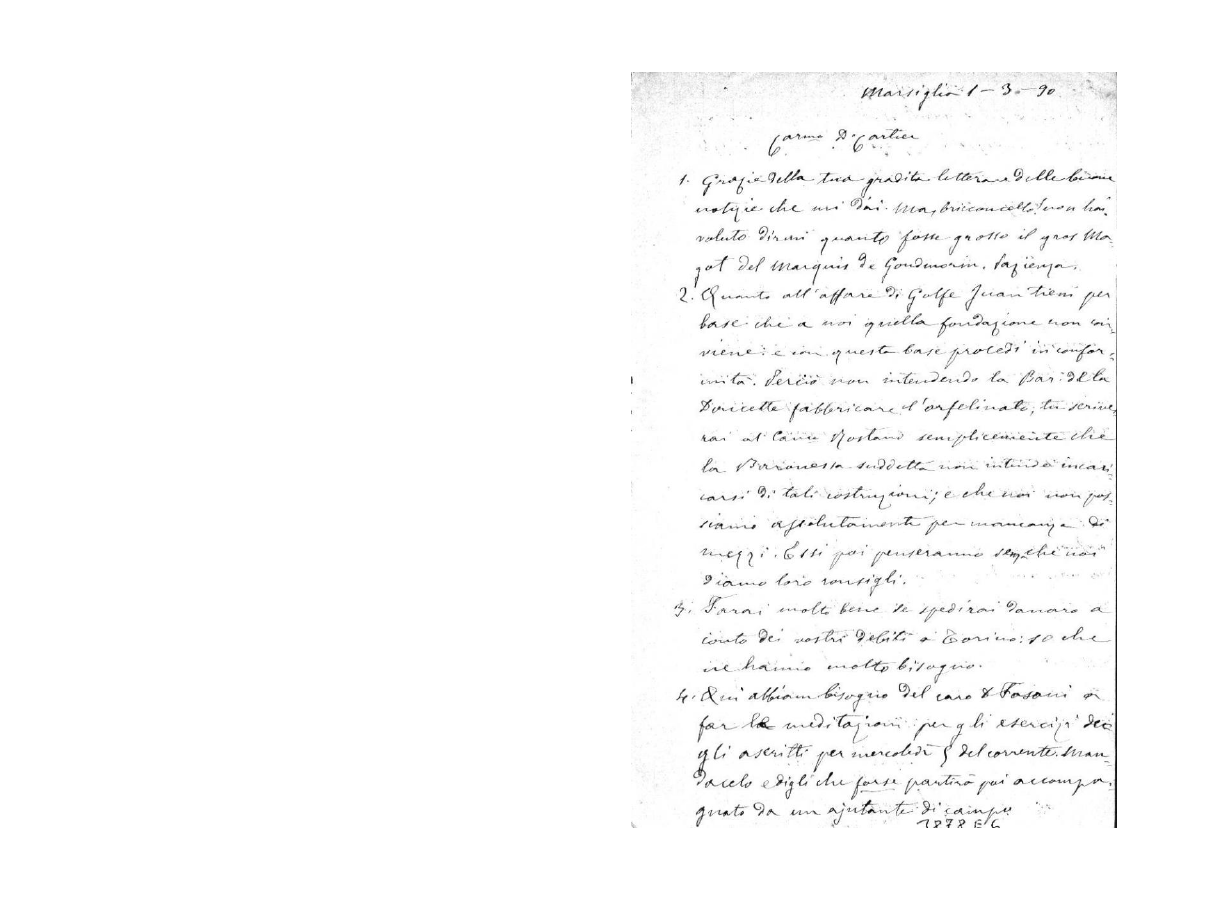 Marsiglia 1-3-90
Carmo D. Cartier
1. Grazie della tua gradita lettera e delle buone
notizie che mi dai. Ma, bricconcello! non hai
voluto dirmi quanto fosse grosso il gros Ma-
got del Marquis de Goudmorin. Pazienza.
2. Quanto all'affare di Golfe Juan tieni per
base che a noi quella fondazione non con-
viene: e con questa base procedi in confor-
mità. Perciò non intendendo la Bar. de la
Doucette fabbricare l'orfelinato, tu scrive-
rai al Can. Rostand semplicemente che
la Baronessa suddetta non intende incari-
carsi di tali costruzioni; e che noi non pos-
siamo assolutamente per mancanza di
mezzi. Essi poi penseranno senza che noi
diamo loro consigli.
3. Farai molto bene se spedirai danaro a
conto dei vostri debiti a Torino: so che
ne hanno molto bisogno.
4. Qui abbiam bisogno del caro D. Fasani a
far le meditazioni per gli esercizi de
gli ascritti per mercoledì 5 del corrente. Man-
dacelo e digli che forse partirà poi accompa-
gnato da un ajutante di campo
1878 E 6